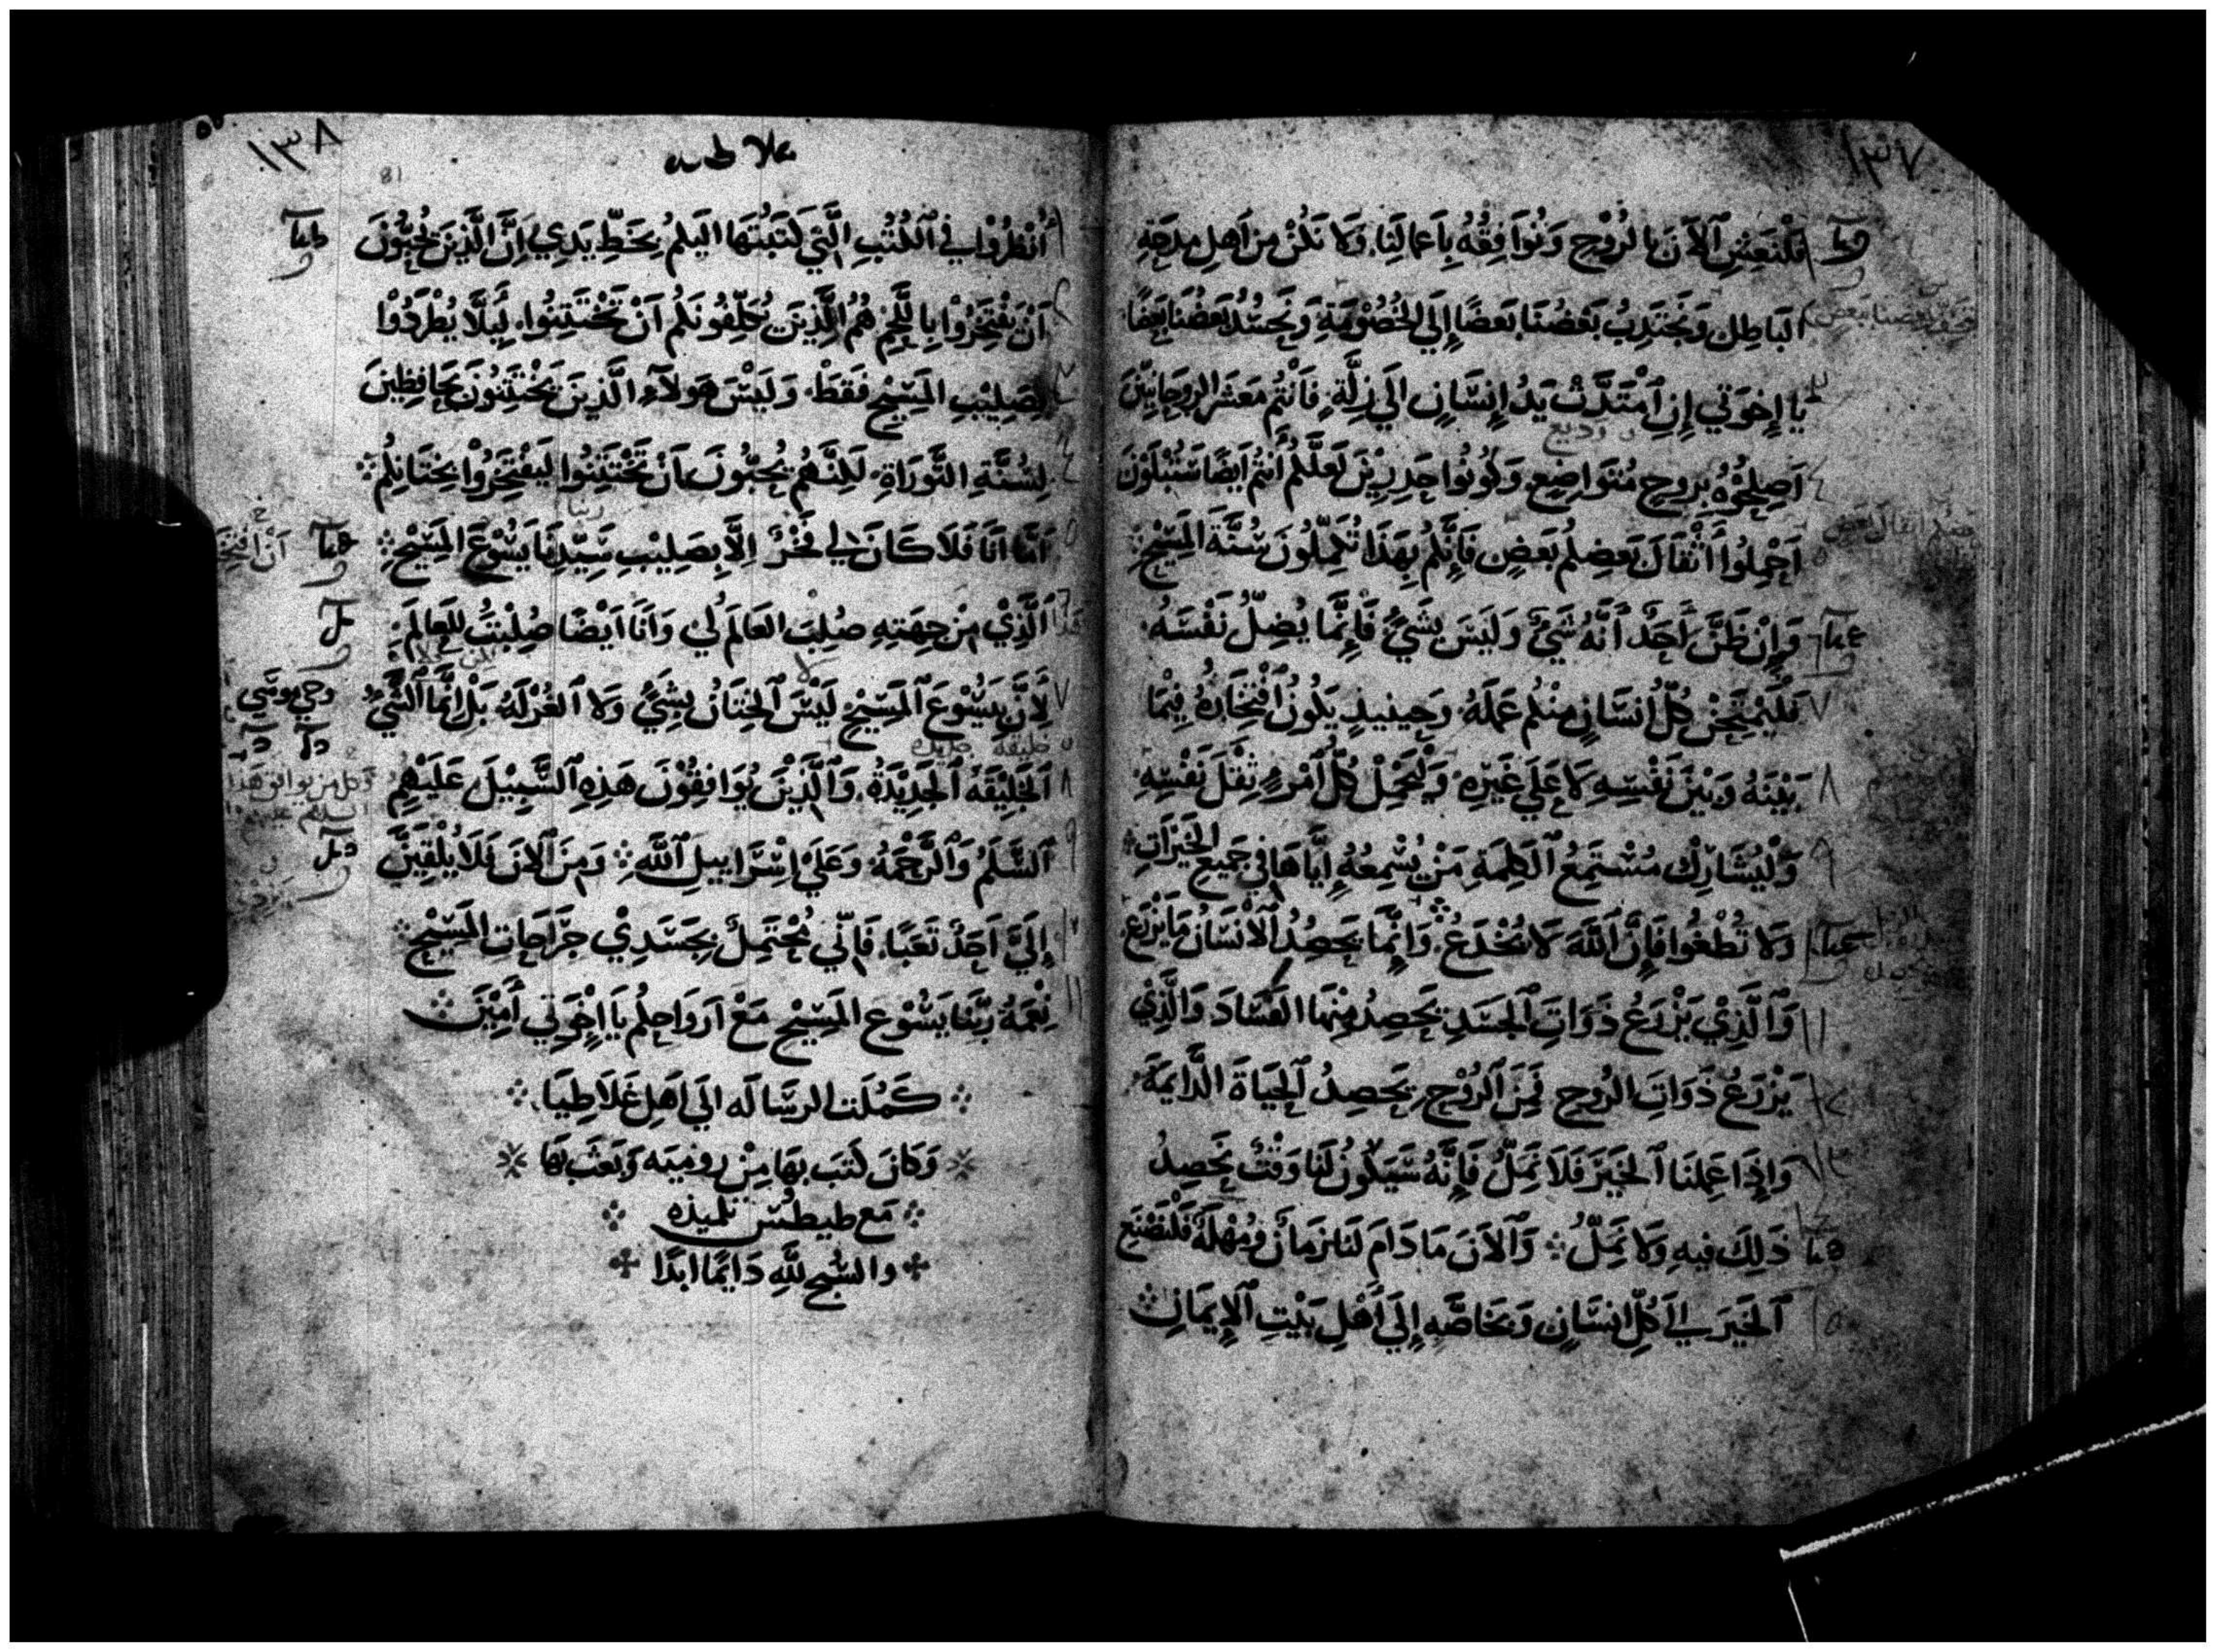 ١٣٧
فَلْنَعِشِ ٱلآنَ بِالرُوْحِ وَنُوَافِقُهُ بِاَعمَالِنَا. وَلا نَكُنْ مِن اَهلِ مِدحَةِ
البَاطِل وَيَجْتَذِبُ بَعْضُنَا بَعضًا إِلَي الخُصُوْمَةِ وَيَحسُدُ بَعْضُنَا بَعضًا
يا إِخوَتي إِنِ ٱمْتَدَّتْ يَدُ إِنسَانٍ الَي زلَّةٍ. فَانْتُم مَعشَر الروحَانِيّينَ
اَصلِحُوْهُ بِروحٍ مُتوَاضِعٍ. وَكُونُوا حَذِرِيْنَ لَعَلَّكُم أَنتُم اَيضًا سَتُبْتَلَوْنَ
اَحْمِلُوا أَثْقَالَ بَعضِكُم بَعضٍ فَإِنَّكُم بِهَذَا تُكَمِّلُونَ سُنَّةَ المَسِيْحِ
وَإِنْ ظَنَّ اَحَدٌ أَنَّهُ شَيْءٌ وَلَيسَ بِشَيْءٍ فَإِنَّمَا يُضِلُّ نَفْسَهُ.
فَلْيَمْتَحِنْ كُلُّ انسَانٍ مِنكُم عَمَلَهُ. وَحِينِيذٍ يَكُونُ ٱفْتِخَارُهُ فِيْمَا
بَيْنَهُ وَبَيْنَ نَفْسِهِ لاَ عَلَي غَيْرِهِ وَلْيَحْمِلْ كُلُّ اَمْرءٍ ثِقْلَ نَفْسِهِ.
وَلْيُشَارِك مُسْتَمِعُ ٱلكَلِمَةِ مَنْ يُسْمِعُهُ إِيَّاهَا في جَمِيعِ الخَيْرَاتِ
وَلا تُطْغُوا فَإِنَّ ٱللَّهَ لَا يُخْدَعُ. وَإِنَّمَا يَحصِدُ ٱلاِنْسَانُ مَا يَزْرَع
وَٱلَّذِيْ يَزْرَعُ ذَوَاتَ ٱلجَسَدِ يَحصِدُ مِنْهَا الفَسَادَ وَالَّذِيْ
يَزْرَعُ ذَوَاتِ الرُوحِ فَمِنَ ٱلرُوْحِ يَحصِدُ ٱلحَيَاةَ الدَّايِمَةَ.
وَإِذَا عَمِلنَا ٱلخَيْرَ فَلَا نَمِلُّ فَإِنَّهُ سَيَكُونُ لَنَا وَقْتٌ نَحصِدُ
ذَلِكَ فِيهِ وَلا نَمَلُّ. وَٱلاَنَ مَا دَامَ لَنَا زمَانٌ وَمُهْلَةٌ فَلْنَصْنَع
ٱلخَيرَ الي كُلِّ انسَانٍ وَبخَاصَّهِ إِلَي أَهْلِ بَيْتِ ٱلاِيمَانِ
١٣٨
غلاطيه
81
أُنْظُرُوْا في ٱلكُتُبِ الَّتِي كَتَبْتُهَا اليكُم بِخَطِّ يَدِي إِنَّ الَّذِينَ يُحِبُّوْنَ
اَنْ يَفْتَخِرُوْا بِاللَّحْمِ هُمُ الَّذِينَ يُكَلِّفُونَكُم اَنْ تَخْتَتِنُوا. لِيَلَّا يُطْرَدُوْا
بِصَلِيْبِ المَسِيْحِ فَقَطْ. وَلَيْسَ هَولآءِ الَّذِينَ يَخْتَتِنُونَ بِحَافِظِينَ
لِسُنَّةِ التَّورَاةِ. لَكِنَّهُم يُحِبُّونَ اَنْ تَخْتَتِنُوا لِيَفْتَخِرُوْا بِخِتَانِكُم
اَمَّا اَنَا فَلَا كَانَ لي فَخْرٌ اِلَّا بِصَلِيْبِ سَيِّدِنَا يَسُوْعَ المَسِيْحِ
ٱلَّذِيْ مِنْ جِهَتِهِ صُلِبَ العَالَمُ لِيْ وَاَنَا اَيْضًا صُلِبْتُ لِلعَالَمِ.
لِأَنَّ بِيَسُوْعَ ٱلمَسِيْحِ لَيْسَ ٱلخِتَانُ بِشَيْءٍ وَلا ٱلغُرْلَهُ بَلْ اِنَّمَا ٱلشَيْءُ
ٱلخَلِيْقَهُ ٱلجَدِيْدَةُ. وَٱلَّذِيْنَ يُوَافِقُوْنَ هَذِهِ ٱلسَّبِيْلَ عَلَيْهِمِ
ٱلسَّلَمُ وَٱلرَّحْمَةُ وَعَلَيْ اِسْرَاييلِ ٱللَّهِ وَمِنَ ٱلاَنَ فَلَا يُلْقِيَنَّ
إِلَيَّ اَحَدٌ تَعَبًا. فَإِنِّي مُحْتَمِلٌ بِجَسَدِيْ جرَاحَات المَسِيْحِ
نِعْمَةُ رَبِّنَا يَسُوْعِ المَسِيْحِ مَعْ اَروَاحِكُم يَا اِخْوَتِي أَمِيْنَ
كَمُلَت الرسَالَه الَي اَهلِ غَلَاطِيَا.
وَكانَ كَتَبَ بهَا مِنْ روميَه وَبَعَثَ بِهَا
مَع طيطُس تلميذه
والسُبحِ لِلَّهِ دَايمًا ابدًا